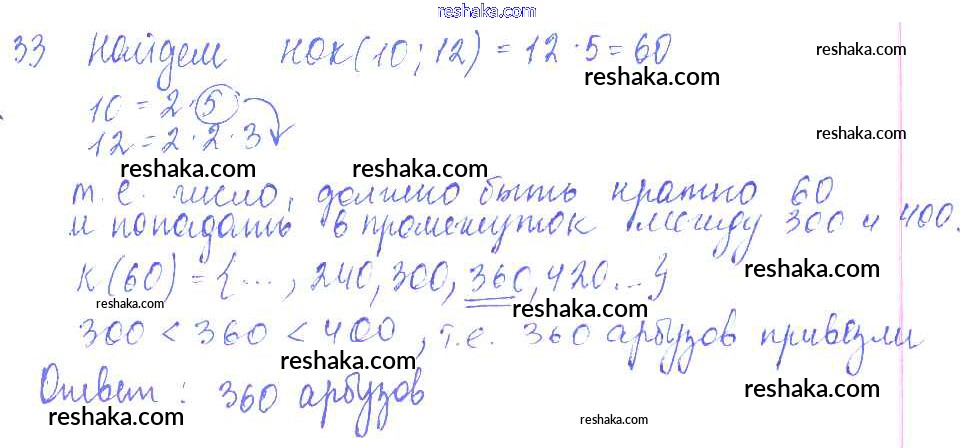 reshaka.com
33 Найдем НОК(10;12) = 12·5=60
reshaka.com
reshaka.com
10 = 2·5
12 = 2·2·3
reshaka.com
reshaka.com
reshaka.com
т.е. число, должно быть кратно 60
и попадать в промежуток между 300 и 400.
reshaka.com
К(60) = {..., 240, 300, 360, 420...}
reshaka.com
reshaka.com
300 < 360 < 400, т.е. 360 арбузов привезли
reshaka.com
reshaka.com
Ответ: 360 арбузов
reshaka.com
reshaka.com